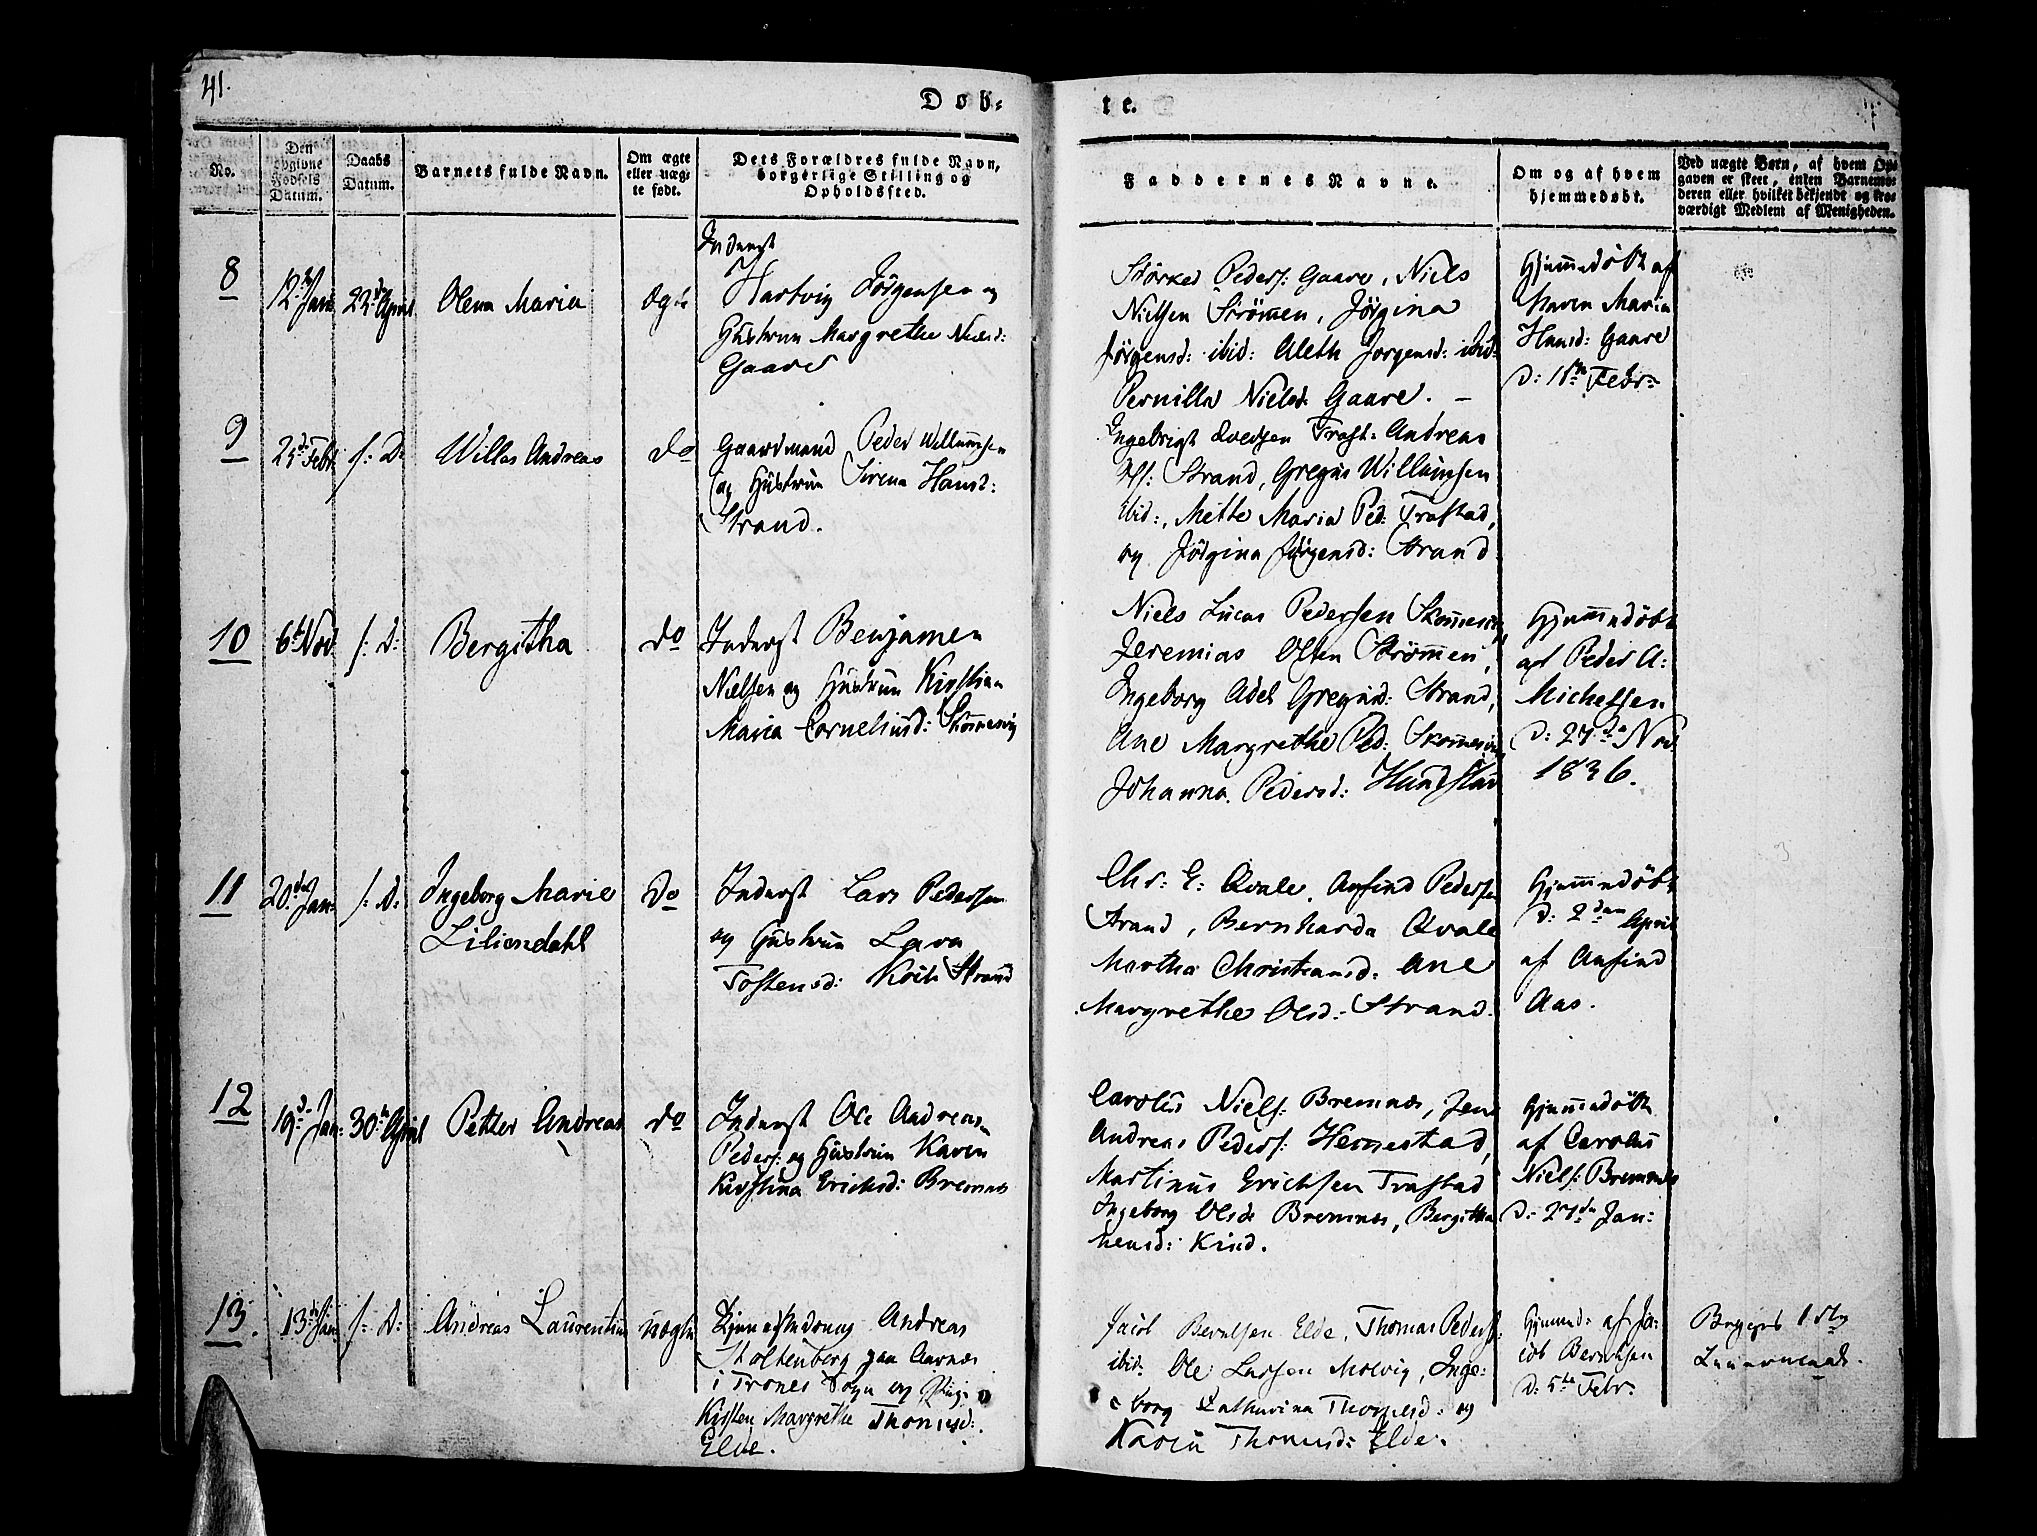 41.
Døb-
te.
No.
Den
opgivne
Fødsels
Datum.
Daabs
Datum.
Barnets fulde Navn.
Om ægte
eller uæg-
te født.
Dets Forældres fulde Navn,
borgerlige Stilling og
Opholdssted.
Faddernes Navne.
Om og af hvem
hjemmedøbt.
Ved uægte Børn, af hvem Op-
gaven er skeet, enten Barnemo-
deren eller hvilket bekjendt og tro-
værdigt Medlem af Menigheden.
8
12 Jan
23d April
Olena Maria
ægte
Inderst
Hartvig Jørgensen og
Hustrue Margrethe Nielsd:
Gaare
Størker Peders: Gaare, Niels
Nielsen Strömen, Jörgina
Jørgensd: ibid: Aleth Jorgensd: ibid:
Pernilla Nielsd: Gaare. –
Hjemmedöbt af
Maren Maria
Hansd: Gaare
D: Febr:
9
Febr
s: D:
Willas Andreas
do
Gaardmand Peder Willumsen
og Hustrue Sirena Hansd:
Strand.
Engebrigt Trast: Andreas
Strand, Gregus Willumsen
ibid:, Mette Maria Ped: Trastad,
og Jörgina Jörgensd: Strand
10
6te Nov
s: D:
Bergitha
do
Inderst Benjamen
Nielsen og Hustrue Kirstina
Maria Corneliusd: Skomesvig
Niels Lucas Pedersen
Jeremias Olsen Strömmen,
Ingeborg Adel Gregusd: Strand,
Ane Margrethe Ped:
Johanna Pedersd: Hundstad
Hjemmedöbt
af Peder A:
Michelsen
D: 27de Nov
1836.
11
20de Jan:
s: D:
Ingeborg Marie
Liliendahl
do
Inderst Lars Pedersen
og Hustrue Lava
Tostensd: Koch Strand
Chr: E: Qvale, Anfind Peders
Strand, Bernharda Qvale
Martha Christiansd: Ane
Margrethe Olsd: Strand.
Hjemmedöbt
D: 2den April
af Anfind
Aas.
12
19de Jan:
30te April
Petter Andreas
do
Inderst Ole Andreas
Peders: og Hustrue Karen
Kirstina Erichsd: Bremnes
Carolus Niels: Bremnes, Jens
Andreas Peders: Hemestad,
Martinus Erichsen Trastad
Ingeborg Olsd: Bremnes, Bergitha
Hensd: Kind.
Hjemmedöbt
af Carolus
Niels: Bremnes
D: 27de Jan:
13.
13de Jan
s: D:
Andreas Laurentius
uægte
Andreas
Stoltenberg paa Aarnes
i Tranes Sogn og Pige
Kirsten Margrethe Thomesd:
Elde.
Jacob Berntsen Elde, Thomas Peders:
ibid: Ole Larsen Molvig, Inge-
borg Catharina Thomesd: og
Karen Thomesd: Elde.
Hjemmd: af Ja-
cob Berntsen
D: 5te Febr: